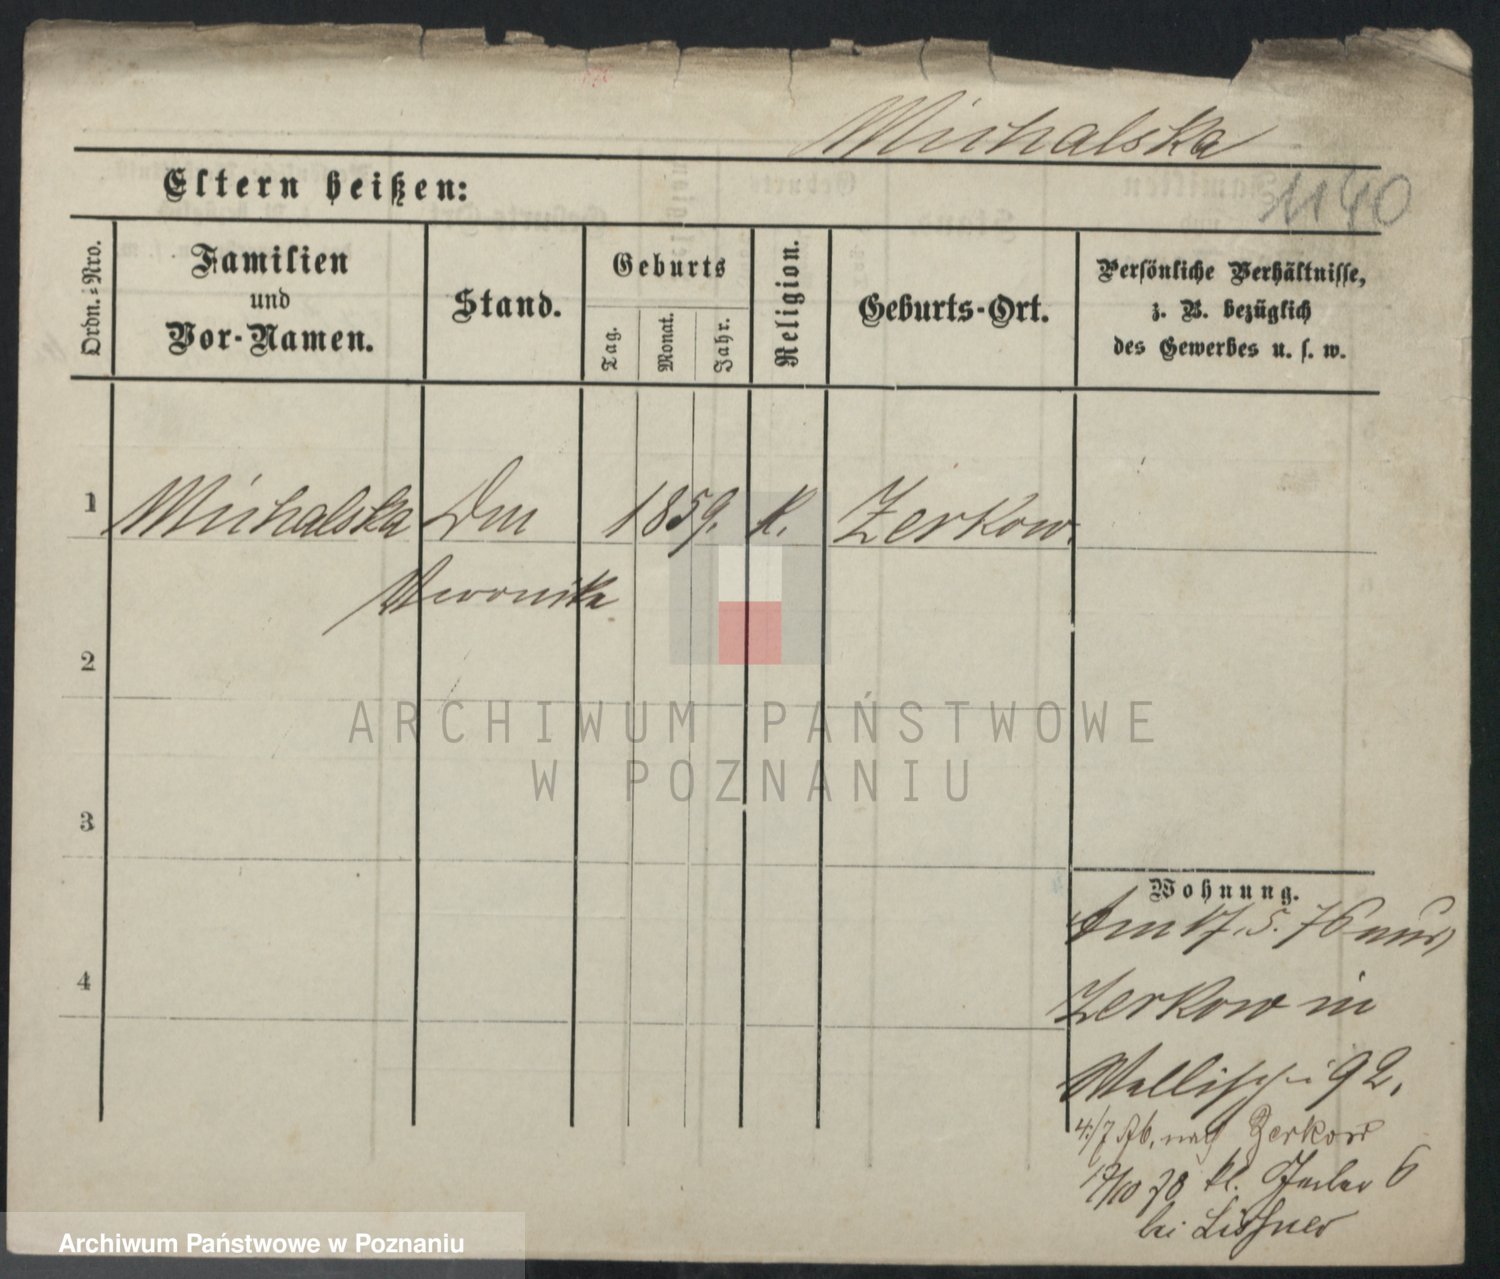 Michalska
1140
Eltern heißen:
Ordn.=Nro.
Familien
und
Vor-Namen.
Stand.
Geburts
Tag.
Monat.
Jahr.
Religion.
Geburts-Ort.
Persönliche Verhältnisse,
z. B. bezüglich
des Gewerbes u. s. w.
1 Michalska Dm 1859. k. Zerkow.
Veronika
2
3
4
Wohnung.
Am 17. 5. 76 aus
Zerkow in
Wallischei 92.
4/7 76. nach Zerkow
17/10 78 kl. Gerber 6
bei Lissner
ARCHIWUM PAŃSTWOWE
W POZNANIU
Archiwum Państwowe w Poznaniu